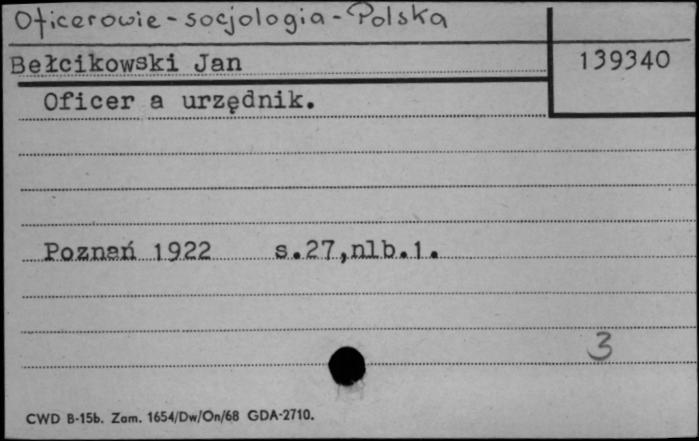 Oficerowie - socjologia - Polska
Bełcikowski Jan
139340
Oficer a urzędnik.
Poznań 1922 s.27,nlb.1.
3
CWD B-15b. Zam. 1654/Dw/On/68 GDA-2710.